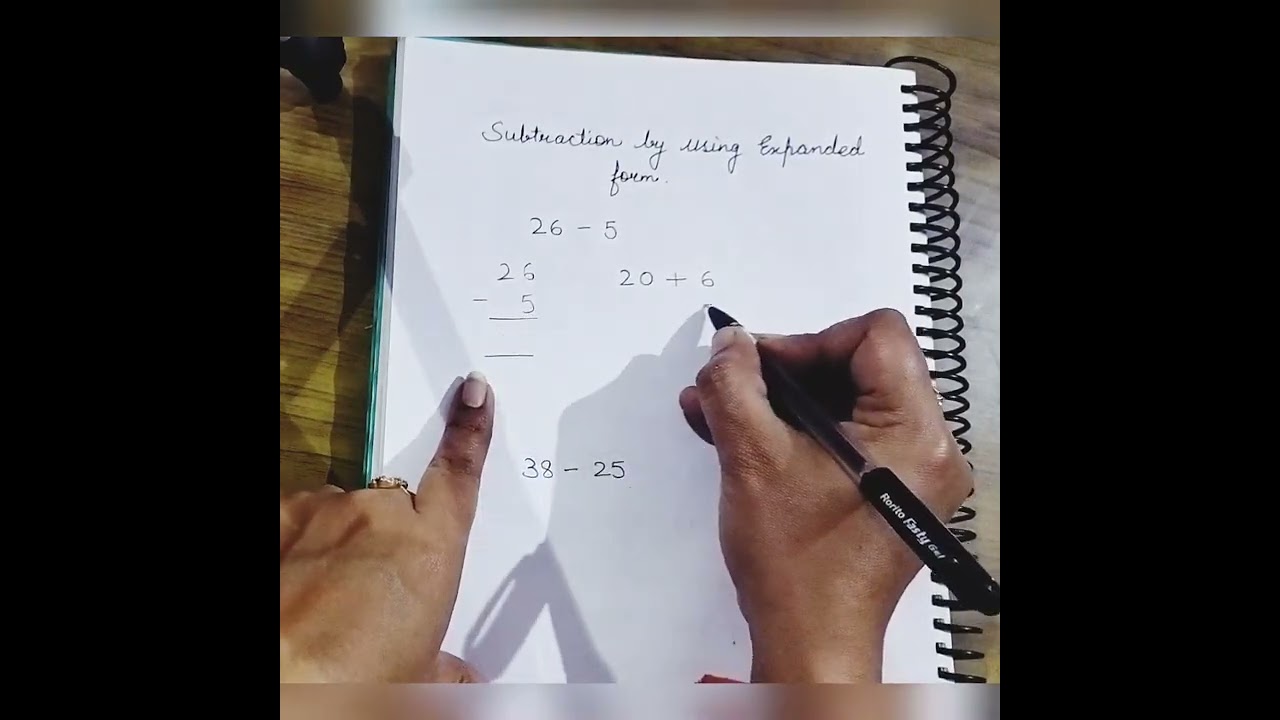 Subtraction by using Expanded
form.
26 - 5
26
20 + 6
- 5
38 - 25
Rorito Fasty Gel